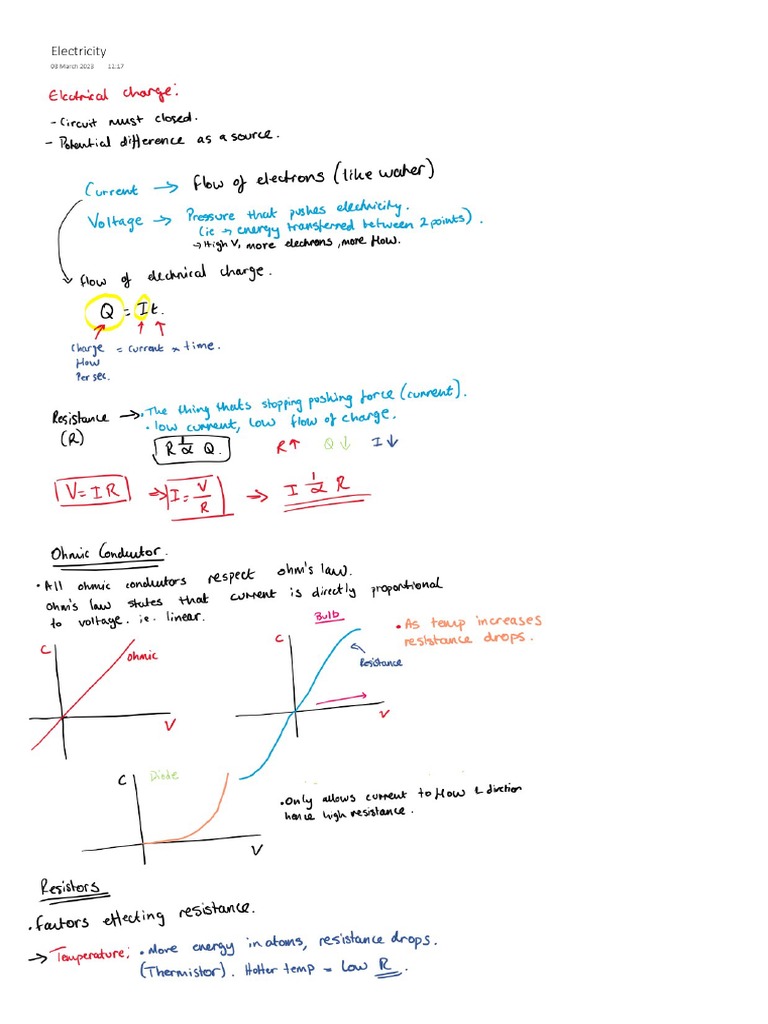 Electricity
03 March 2023 11:17
Electrical charge:
- Circuit must closed.
- Potential difference as a source.
Current → flow of electrons (like water)
Voltage → Pressure that pushes electricity.
(ie → energy transferred between 2 points).
→ High V, more electrons, more flow.
flow of electrical charge.
Q = It.
Charge = current × time.
flow
Per sec.
Resistance → • The thing thats stopping pushing force (current).
(R) • low current, low flow of charge.
R 1/∝ Q. R↑ Q↓ I↓
V = IR ⇒ I = V/R → I 1/∝ R
Ohmic Conductor.
• All ohmic conductors respect ohm's law.
ohm's law states that current is directly proportional
to voltage. ie. linear.
Bulb
• As temp increases
resistance drops.
C
ohmic
V
C
Resistance
V
C
Diode
V
• Only allows current to flow 1 direction
hence high resistance.
Resistors
• factors effecting resistance.
→ Temperature; • More energy in atoms, resistance drops.
(Thermistor). Hotter temp = low R.